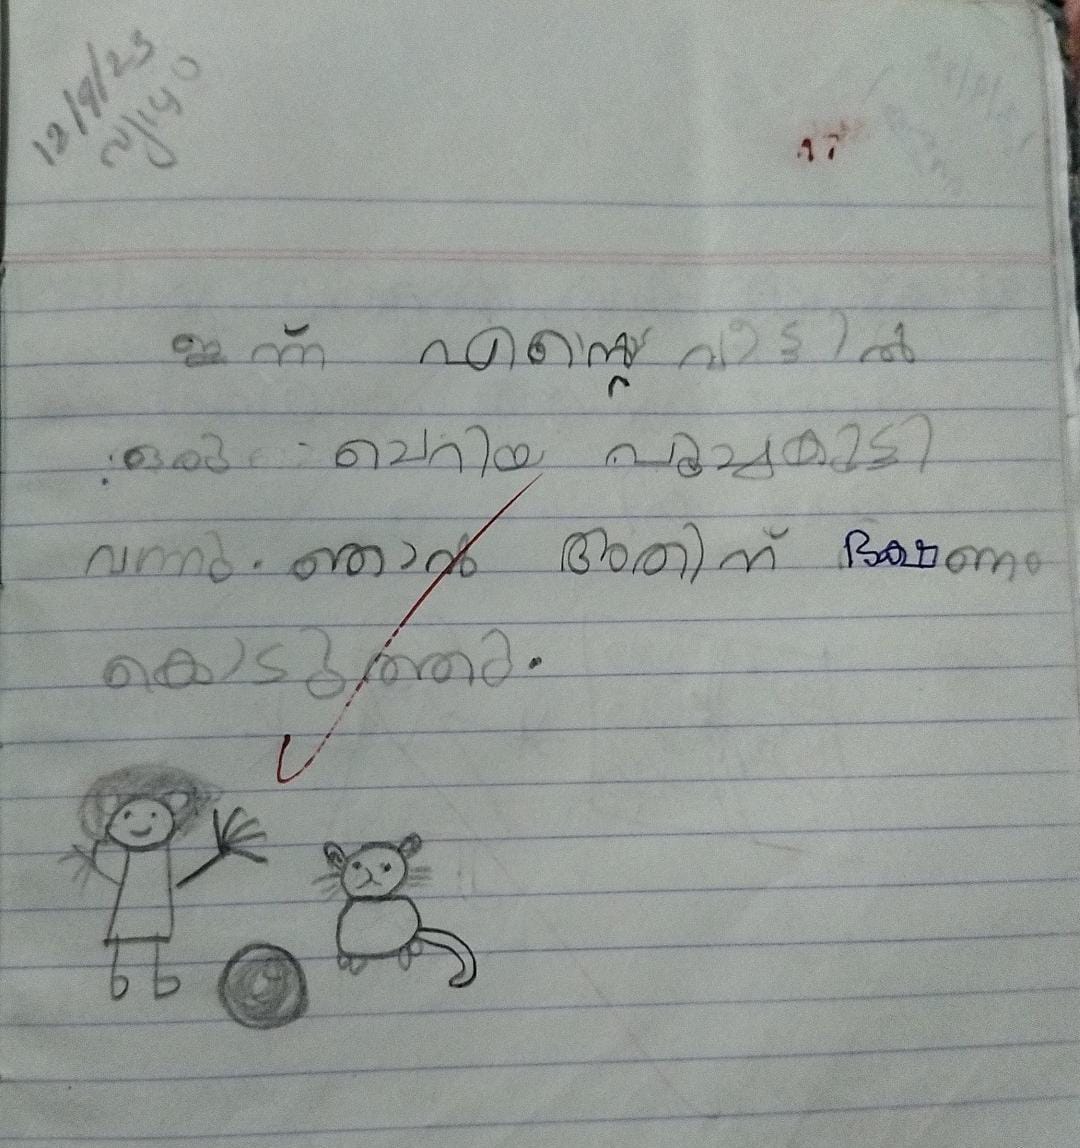 12/9/23
വ്യാഴം
ഇന്ന് എന്റെ വീട്ടിൽ
ഒരു ചെറിയ പൂച്ചകുട്ടി
വന്നു. ഞാൻ അതിന് ഭക്ഷണം
കൊടുത്തു.